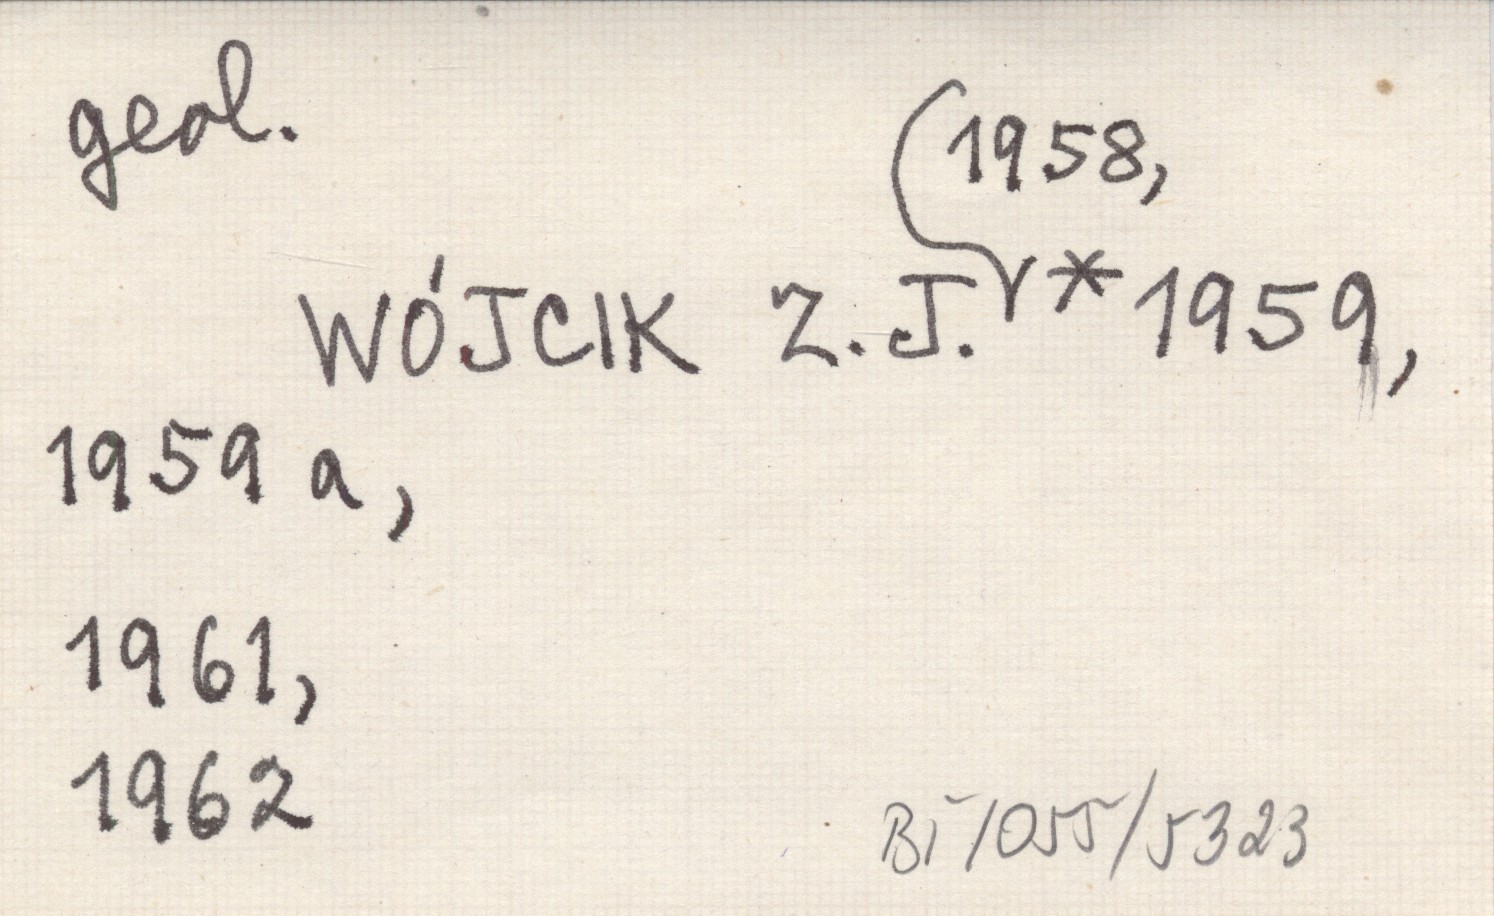 geol.
1958,
WÓJCIK Z. J. * 1959,
1959 a,
1961,
1962
BI/055/5323